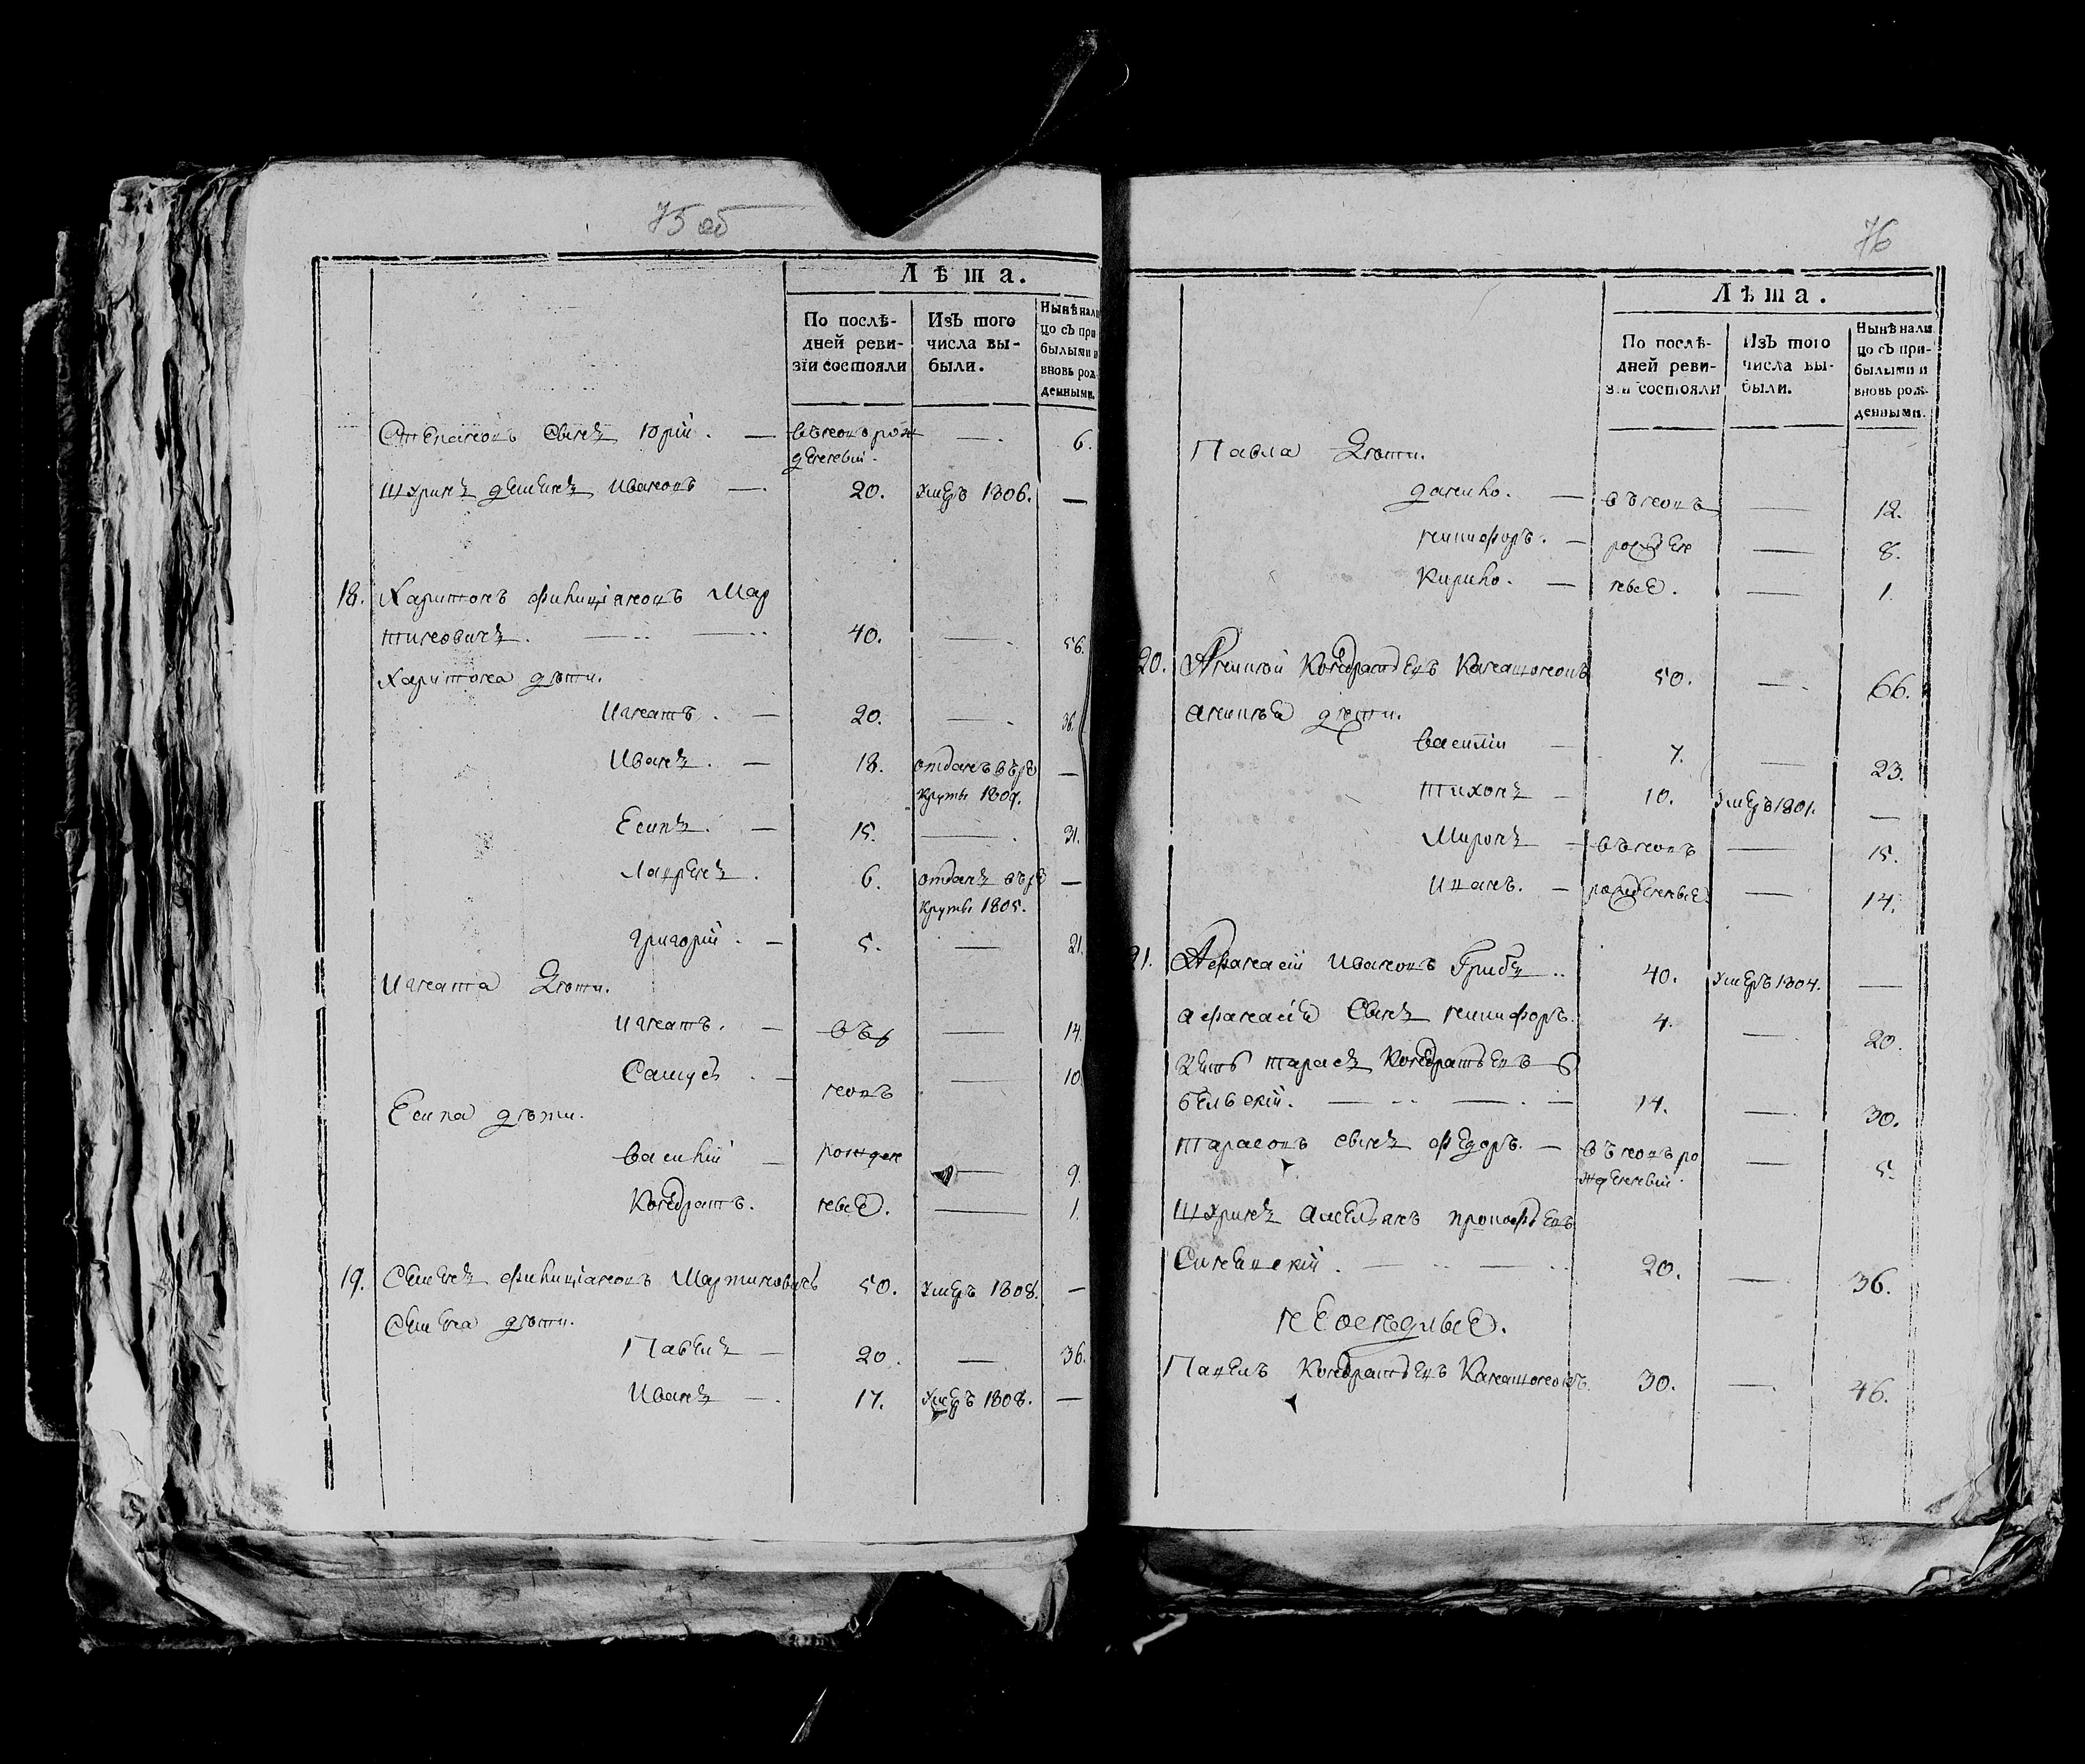 75 об
Лѣта.
По послѣ-
дней реви-
зіи состояли
Изъ того
числа вы-
были.
Нынѣ нали
цо съ при
былыми и
вновь рож-
денными.
Степановъ сынъ Юрій. — вновь рож — 6.
денный.
Шуринъ Деменъ Ивановъ — 20. умеръ 1806. —
18. Харитонъ Филиціановъ Мар
тиновичъ. 40. — 56.
Харитона дѣти.
Игнатъ. — 20. — 36.
Иванъ. — 18. отданъ въ ре —
круты 1809.
Есипъ. — 15. — 31.
Лавренъ. 6. отданъ въ ре —
круты 1805.
Григорій. — 5. — 21.
Игната дѣти.
Игнатъ. — въ — 14.
Самусь — новъ — 10
Есипа дѣти.
Василій — рожден — 9.
Кондратъ. ные. — 1.
19. Семенъ Филиціановъ Мартиновичъ 50. умеръ 1808. —
Семена дѣти.
Павелъ — 20. — 36.
Иванъ — 17. умеръ 1808. —
76
Лѣта.
По послѣ-
дней реви-
зіи состояли
Изъ того
числа вы-
были.
Нынѣ нали
цо съ при-
былыми и
вновь рож-
денными.
Павла дѣти.
Данило. — въ новъ — 12.
Никифоръ. — рожден — 8.
Кирило. — ные. — 1.
20. Аникей Кондратьевъ 50. — 66.
Аникея дѣти.
Василій — 7. — 23.
Тихонъ — 10. умеръ 1801. —
Миронъ — въ новъ — 15.
Иванъ. — рожденные — 14.
21. Афанасій Ивановъ Грибъ 40. умеръ 1804. —
Афанасія сынъ Никифоръ. 4. — 20.
Зять Тарасъ Кондратьевъ
14. — 30.
Тарасовъ сынъ Федоръ. — въ новъ ро — 5.
жденный.
Шуринъ Амельянъ Прокофьевъ
20. — 36.
Неоседлые.
Павелъ Кондратьевъ 30. — 46.